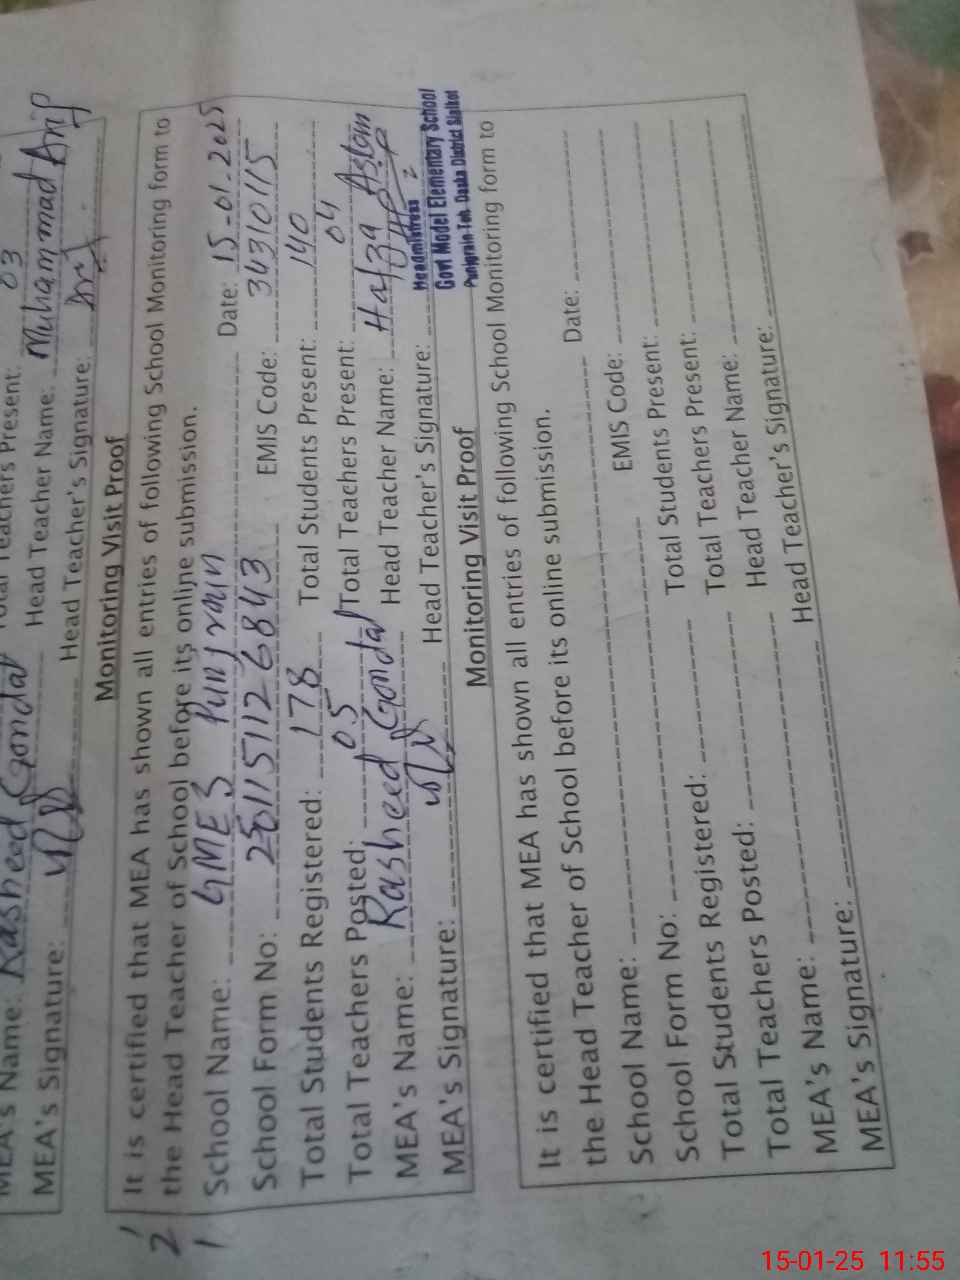 03
Total Teachers Present:
MEA's Name: Rasheed Gondal Head Teacher Name: Muhammad Arif
MEA's Signature: Head Teacher's Signature: Arif
Monitoring Visit Proof
It is certified that MEA has shown all entries of following School Monitoring form to
the Head Teacher of School before its online submission.
School Name: GMES Punjrain Date: 15-01-2025
School Form No: 2501151126843 EMIS Code: 34310115
Total Students Registered: 178 Total Students Present: 140
Total Teachers Posted: 05 Total Teachers Present: 04
MEA's Name: Rasheed Gondal Head Teacher Name: Hafza Aslam
MEA's Signature: Head Teacher's Signature:
Headmistress
Govt Model Elementary School
Punjrain Teh. Daska District Sialkot
2
1
Monitoring Visit Proof
It is certified that MEA has shown all entries of following School Monitoring form to
the Head Teacher of School before its online submission.
School Name: Date:
School Form No: EMIS Code:
Total Students Registered: Total Students Present:
Total Teachers Posted: Total Teachers Present:
MEA's Name: Head Teacher Name:
MEA's Signature: Head Teacher's Signature:
15-01-25 11:55